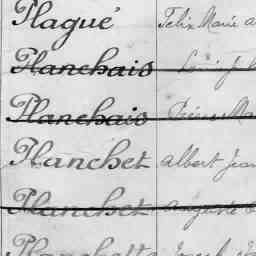 Plagué Felix Marie
Planchais Louis
Planchais Pierre Ma
Planchet Albert Jean
Planchet Auguste
Planchette Joseph